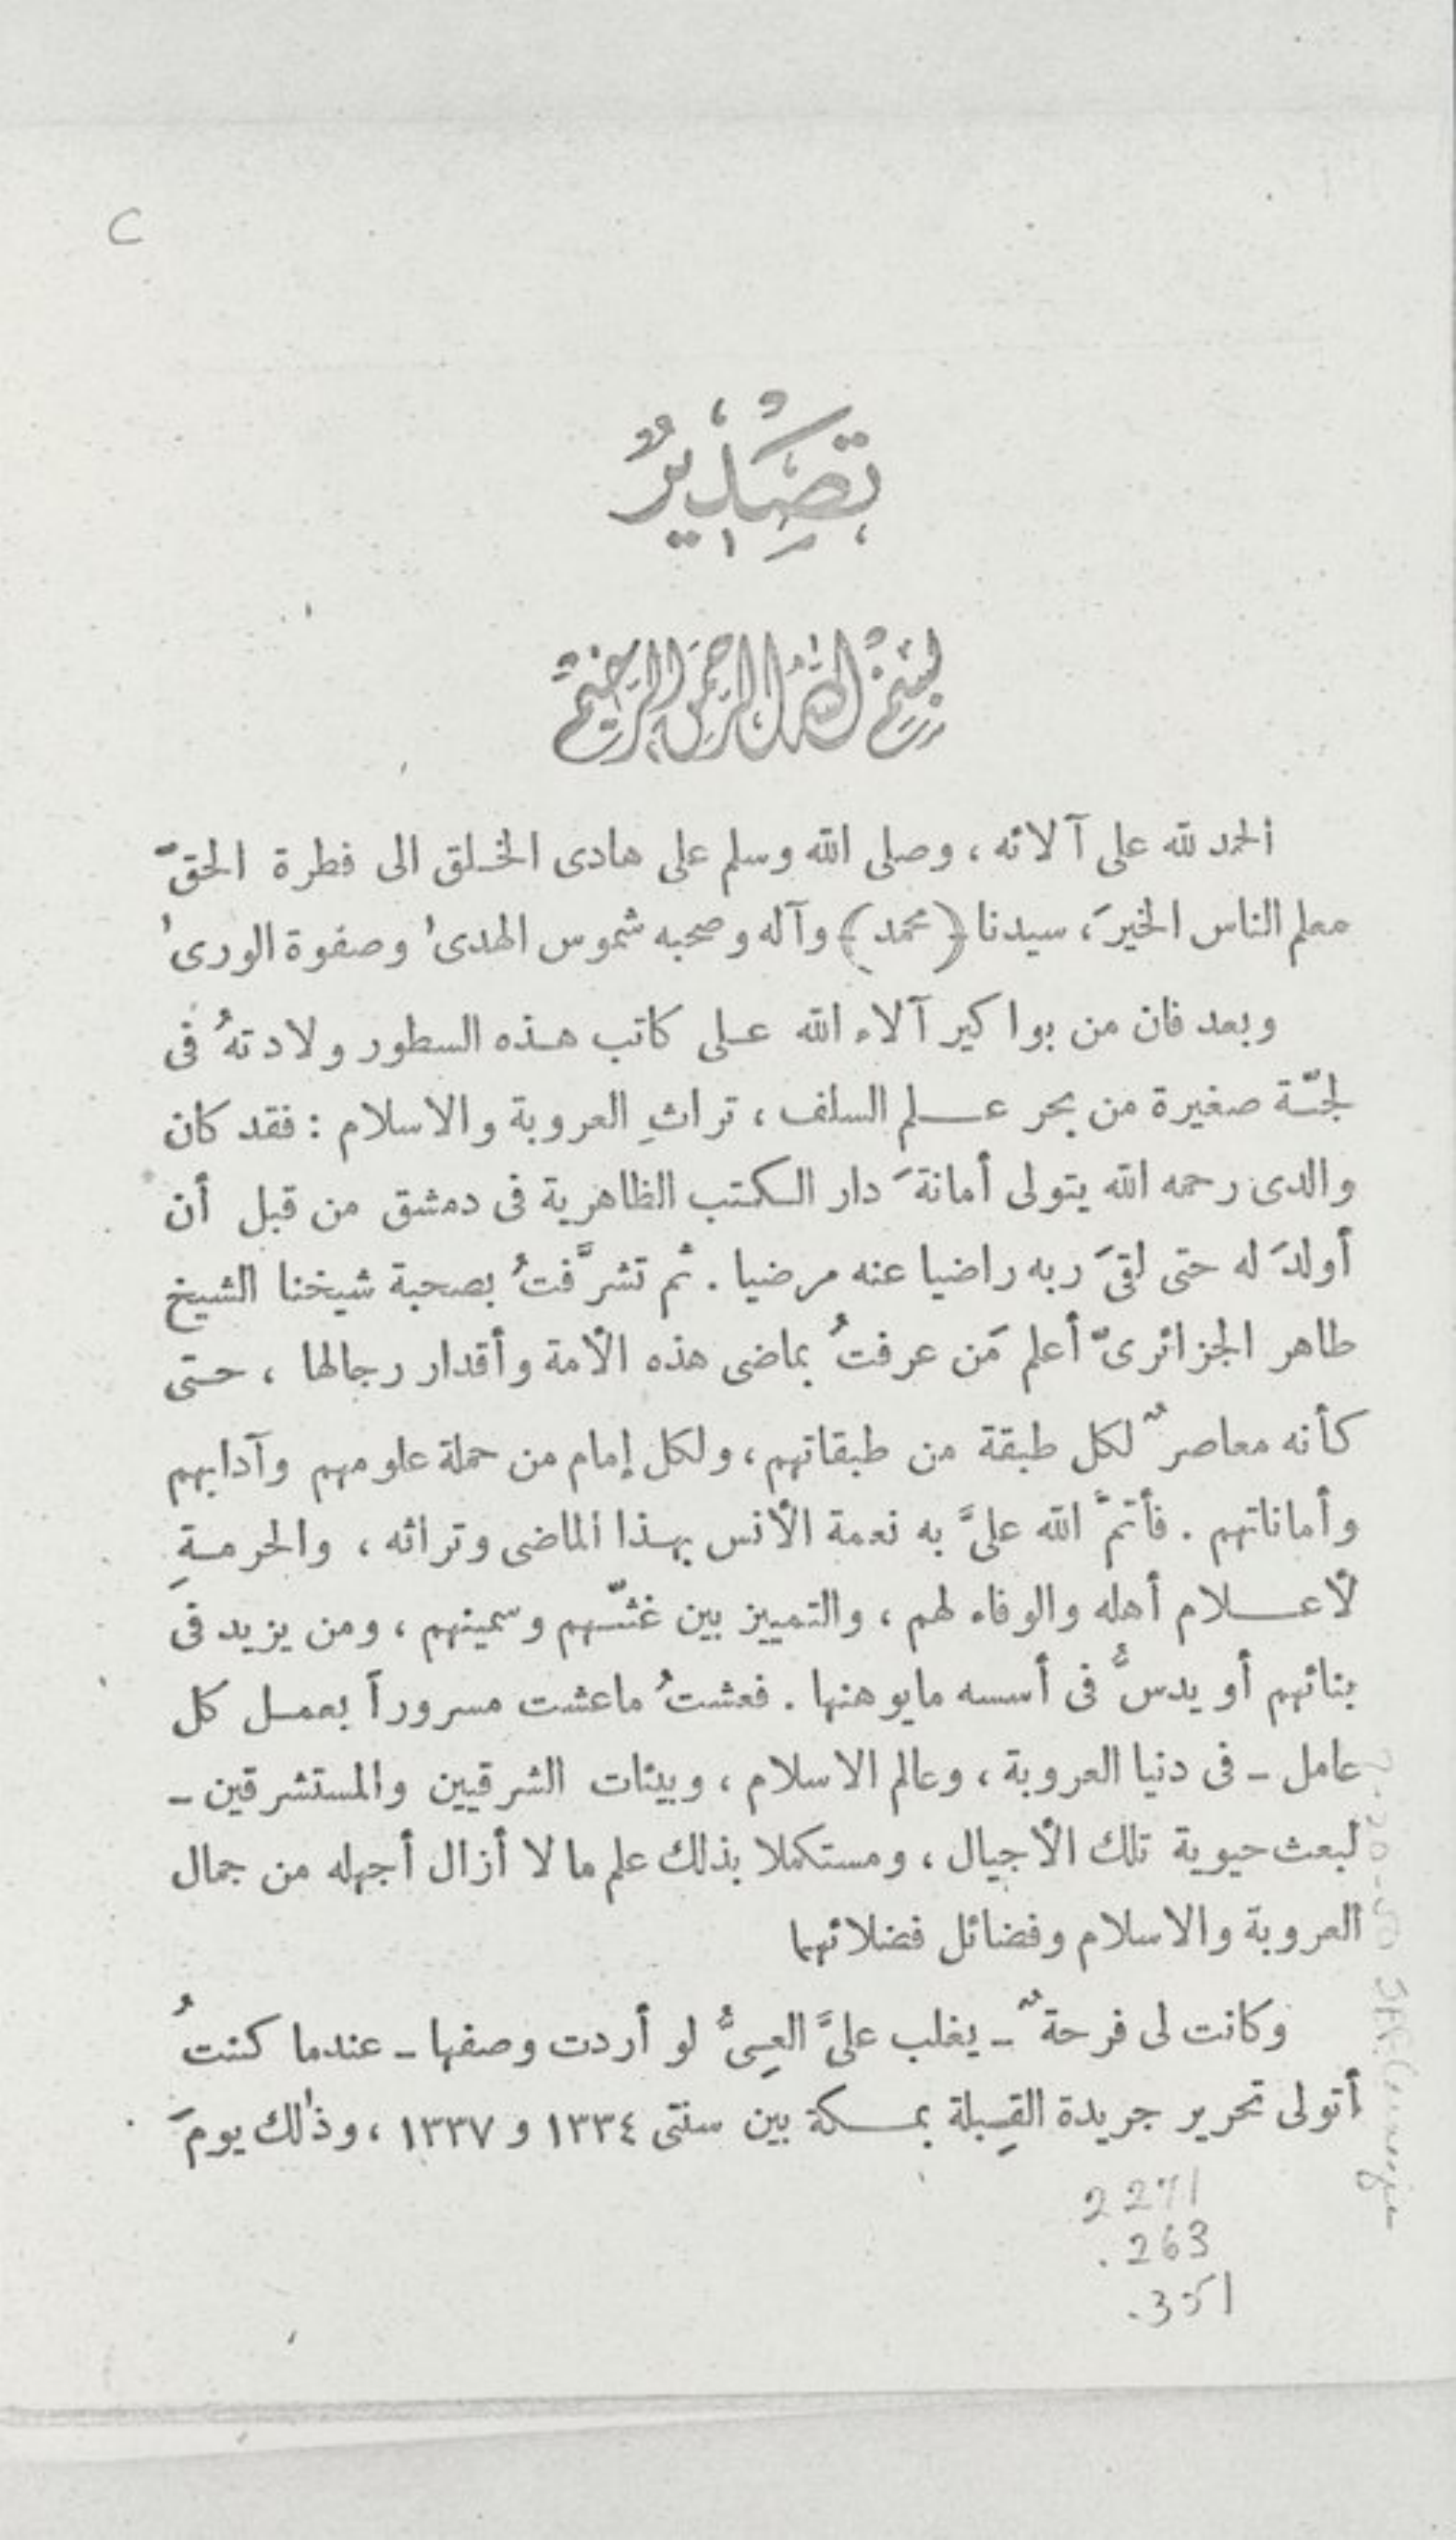 C
تَصْدِيرٌ
بِسْمِ اللهِ الرَّحْمنِ الرَّحِيمِ
الحمد لله على آلائه ، وصلى الله وسلم على هادى الخلق الى فطرة الحقّ
معلم الناس الخيرَ ، سيدنا ﴿محمد﴾ وآله وصحبه شموس الهدىٰ وصفوة الورىٰ
وبعد فان من بواكير آلاء الله على كاتب هذه السطور ولادتهُ فى
لجّة صغيرة من بحر علم السلف ، تراثِ العروبة والاسلام : فقد كان
والدى رحمه الله يتولى أمانةَ دار الكتب الظاهرية فى دمشق من قبل أن
أولدَ له حتى لقىَ ربه راضيا عنه مرضيا . ثم تشرَّفتُ بصحبة شيخنا الشيخ
طاهر الجزائرىّ أعلم مَن عرفتُ بماضى هذه الأمة وأقدار رجالها ، حتى
كأنه معاصرٌ لكل طبقة من طبقاتهم ، ولكل إمام من حملة علومهم وآدابهم
وأماناتهم . فأتمَّ الله علىَّ به نعمة الأنس بهذا الماضى وتراثه ، والحرمةِ
لأعلام أهله والوفاء لهم ، والتمييز بين غثّهم وسمينهم ، ومن يزيد فى
بنائهم أو يدسُّ فى أسسه مايوهنها . فعشتُ ماعشت مسروراً بعمل كل
عامل ـ فى دنيا العروبة ، وعالم الاسلام ، وبيئات الشرقيين والمستشرقين ـ
لبعث حيوية تلك الأجيال ، ومستكملا بذلك علم ما لا أزال أجهله من جمال
العروبة والاسلام وفضائل فضلائهما
وكانت لى فرحةٌ ـ يغلب علىَّ العِىُّ لو أردت وصفها ـ عندما كنتُ
أتولى تحرير جريدة القِبلة بمكة بين سنتى ١٣٣٤ و ١٣٣٧ ، وذٰلك يومَ
2271
.263
.351